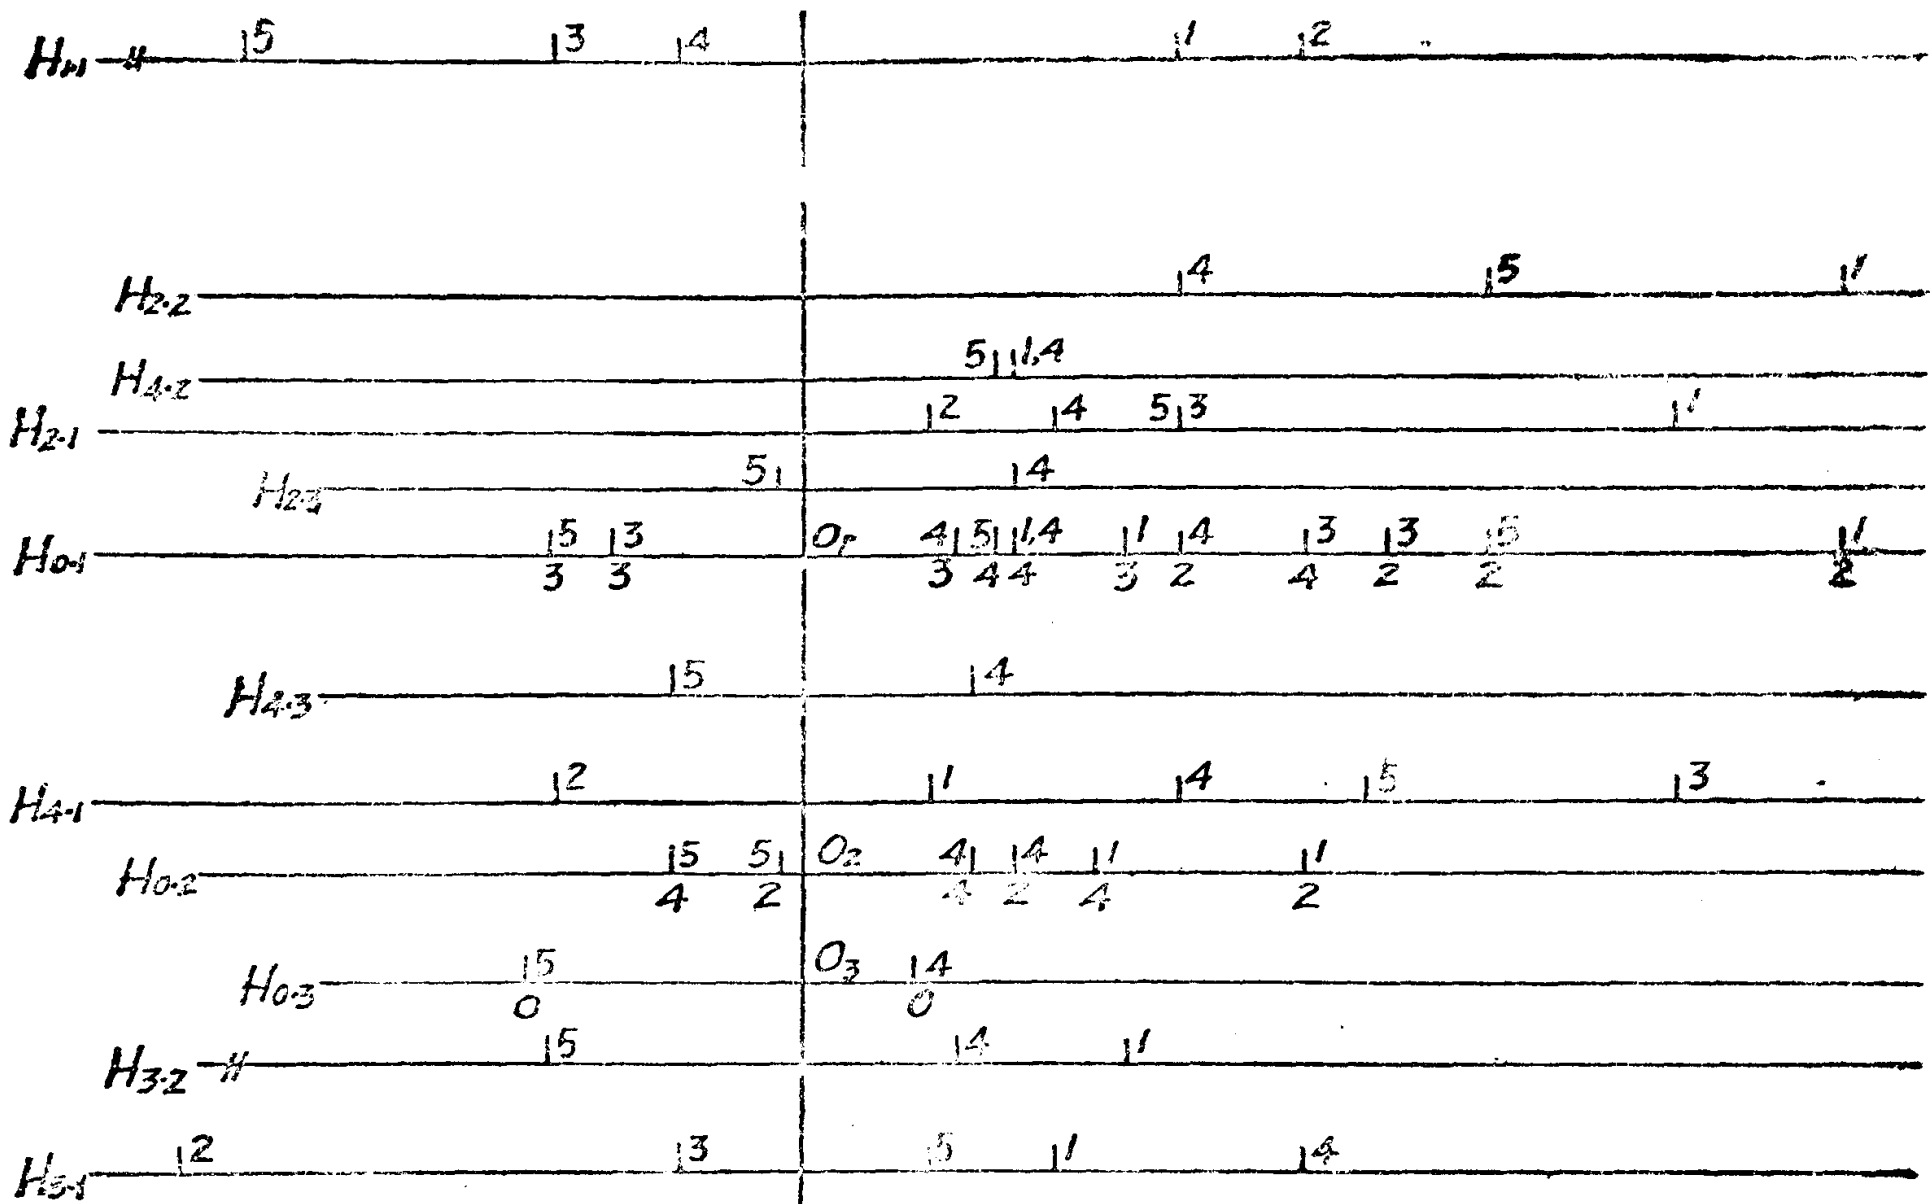 H1·1 5 3 4 1 2
H2·2 4 5 1
H4·2 5 1,4
H2·1 2 4 5 3 1
H2·3 5 4
H0·1 5 3 O1 4 5 1,4 1 4 3 3 5 1
3 3 3 4 4 3 2 4 2 2 2
H4·3 5 4
H4·1 2 1 4 5 3
H0·2 5 5 O2 4 4 1 1
4 2 4 2 4 2
H0·3 5 O3 4
0 0
H3·2 5 4 1
2 3 5 1 4